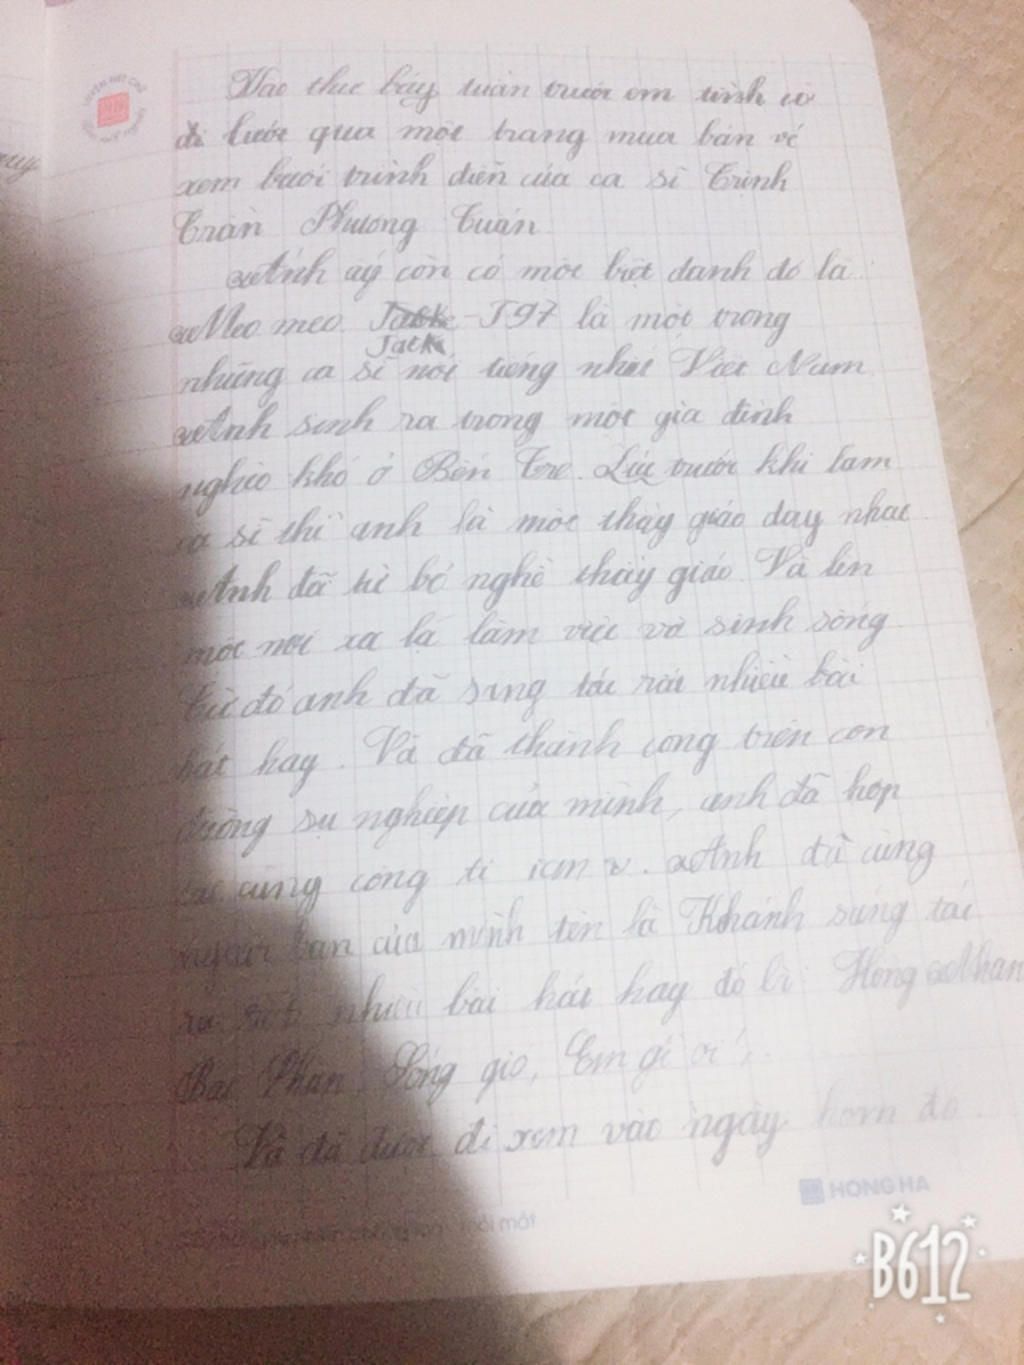 Vào thứ bảy tuần trước em tình cờ
đi lướt qua một trang mua bán vé
xem buổi trình diễn của ca sĩ Trịnh
Trần Phương Tuấn
Anh ấy còn có một biệt danh đó là
Meo meo. Jack - J97 là một trong
những ca sĩ nổi tiếng nhất Việt Nam
Anh sinh ra trong một gia đình
nghèo khó ở Bến Tre. Lúc trước khi làm
ca sĩ thì anh là một thầy giáo dạy nhạc
Anh đã từ bỏ nghề thầy giáo. Và lên
một nơi xa lạ làm việc và sinh sống
Từ đó anh đã sáng tác rất nhiều bài
hát hay. Và đã thành công trên con
đường sự nghiệp của mình, anh đã hợp
tác cùng công ti icm. Anh đã cùng
người bạn của mình tên là Khánh sáng tác
ra rất nhiều bài hát hay đó là: Hồng Nhan
Bạc Phận, Sóng gió, Em gì ơi,
Và đã được đi xem vào ngày hôm đó.
HONG HA
B612